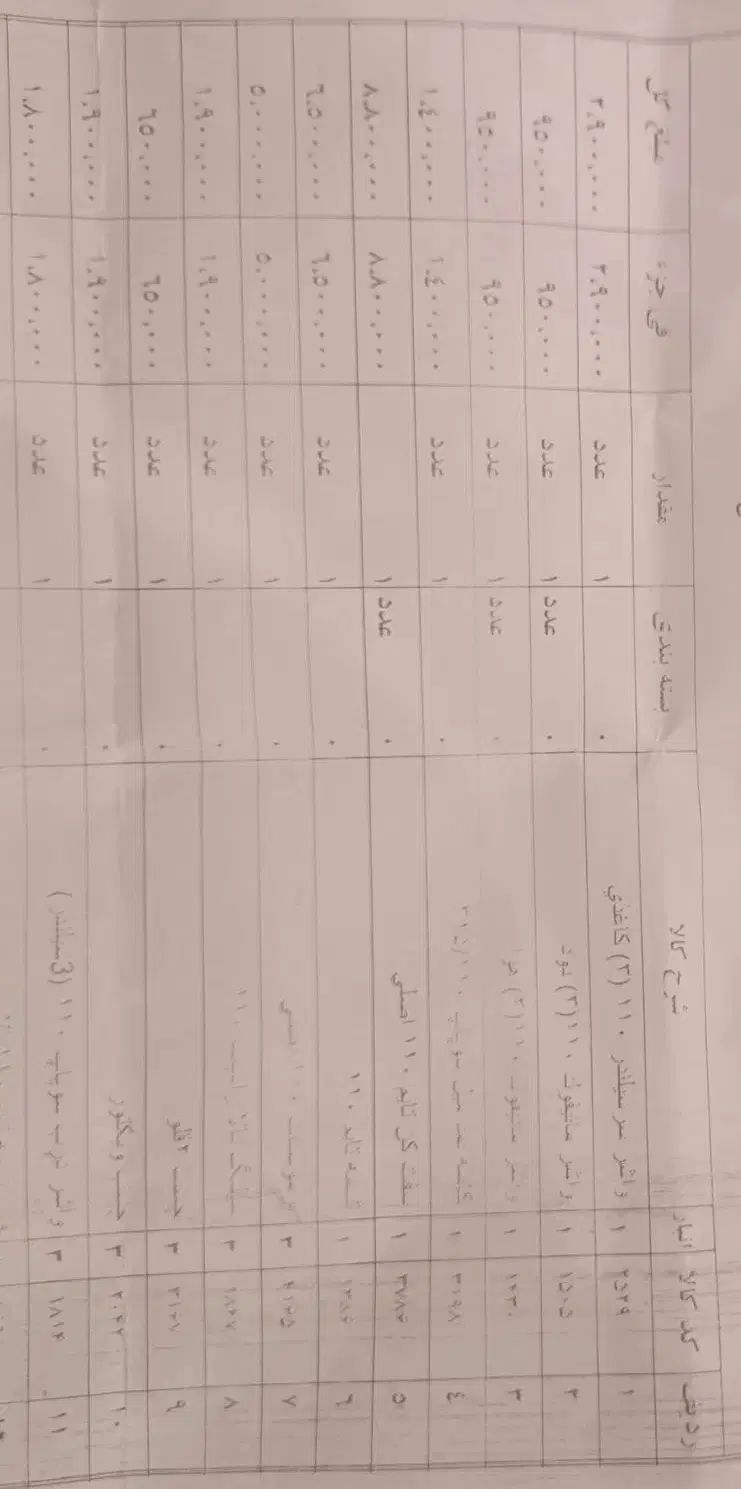 ردیف کد کالا انبار شرح کالا بسته بندی مقدار فی جزء مبلغ کل
۱ ۲۵۲۹ ۱ واشر سرسیلندر ۱۱۰ (۳) کاغذی ۰ ۱ عدد ۲,۹۰۰,۰۰۰ ۲,۹۰۰,۰۰۰
۲ ۱۵۰۵ ۱ واشر منیفولد ۱۱۰ (۳) دود ۰ عدد ۱ عدد ۹۵۰,۰۰۰ ۹۵۰,۰۰۰
۳ ۱۴۳۰ ۱ واشر منیفولد ۱۱۰ (۳) هوا ۰ عدد ۱ عدد ۹۵۰,۰۰۰ ۹۵۰,۰۰۰
۴ ۳۱۹۸ ۱ سوپاپ ۱۱۰ ۰ ۱ عدد ۱,۴۰۰,۰۰۰ ۱,۴۰۰,۰۰۰
۵ ۳۷۸۴ ۱ سفت کن تایم ۱۱۰ اصلی ۰ عدد ۱ ۸,۸۰۰,۰۰۰ ۸,۸۰۰,۰۰۰
۶ ۱۳۸۶ ۱ تسمه تایم ۱۱۰ ۰ ۱ عدد ۶,۵۰۰,۰۰۰ ۶,۵۰۰,۰۰۰
۷ ۴۱۲۵ ۳ ۰ ۱ عدد ۵,۰۰۰,۰۰۰ ۵,۰۰۰,۰۰۰
۸ ۱۸۲۷ ۳ ۱۱۰ ۰ ۱ عدد ۱,۹۰۰,۰۰۰ ۱,۹۰۰,۰۰۰
۹ ۳۱۲۷ ۳ چسب ۰ ۱ عدد ۶۵۰,۰۰۰ ۶۵۰,۰۰۰
۱۰ ۲۰۴۲ ۳ چسب ویکتور ۰ ۱ عدد ۱,۹۰۰,۰۰۰ ۱,۹۰۰,۰۰۰
۱۱ ۱۸۱۴ ۳ واشر درب سوپاپ ۱۱۰ (3سیلندر) ۰ ۱ عدد ۱,۸۰۰,۰۰۰ ۱,۸۰۰,۰۰۰